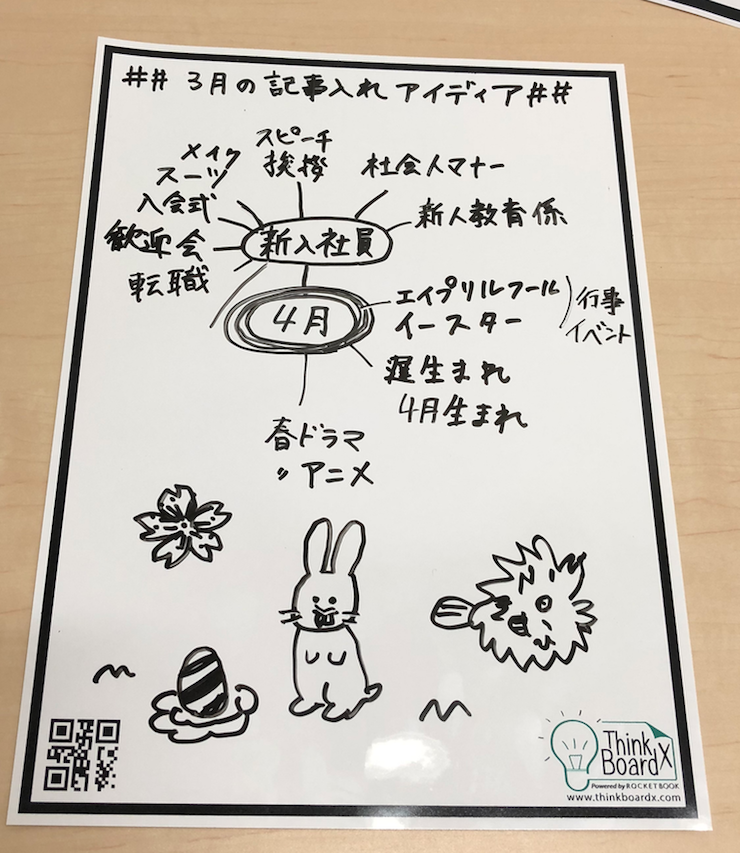 ## 3月の記事入れアイディア##
スピーチ
挨拶
メイク
スーツ
社会人マナー
入会式
新人教育係
歓迎会
新入社員
転職
エイプリルフール
イースター
行事
イベント
4月
遅生まれ
4月生まれ
春ドラマ
〃アニメ
Think
Board X
Powered by ROCKETBOOK
www.thinkboardx.com